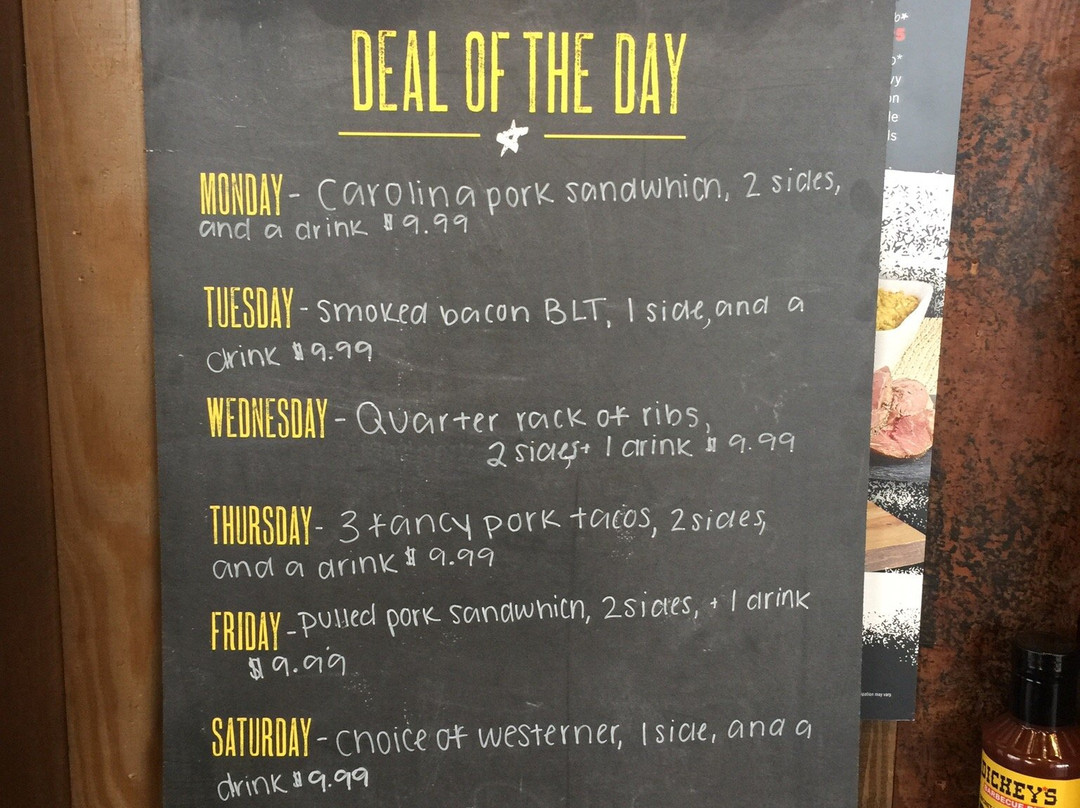 DEAL OF THE DAY
MONDAY - Carolina pork sandwhich, 2 sides,
and a drink $9.99
TUESDAY - smoked bacon BLT, 1 side, and a
drink $9.99
WEDNESDAY - Quarter rack of ribs,
2 sides + 1 drink $9.99
THURSDAY - 3 fancy pork tacos, 2 sides,
and a drink $9.99
FRIDAY - pulled pork sandwhich, 2 sides, + 1 drink
$9.99
SATURDAY - choice of westerner, 1 side, and a
drink $9.99
DICKEY'S
BARBECUE